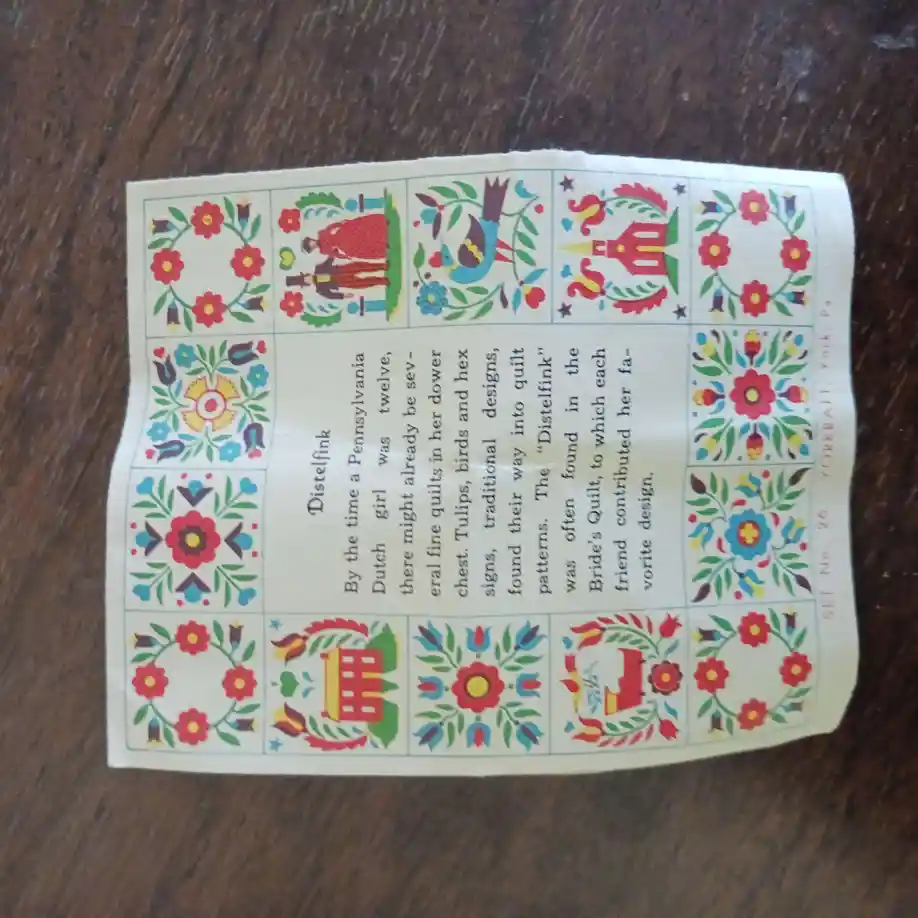 Distelfink
By the time a Pennsylvania
Dutch girl was twelve,
there might already be sev-
eral fine quilts in her dower
chest. Tulips, birds and hex
signs, traditional designs,
found their way into quilt
patterns. The "Distelfink"
was often found in the
Bride's Quilt, to which each
friend contributed her fa-
vorite design.
SET No. 26 York, Pa